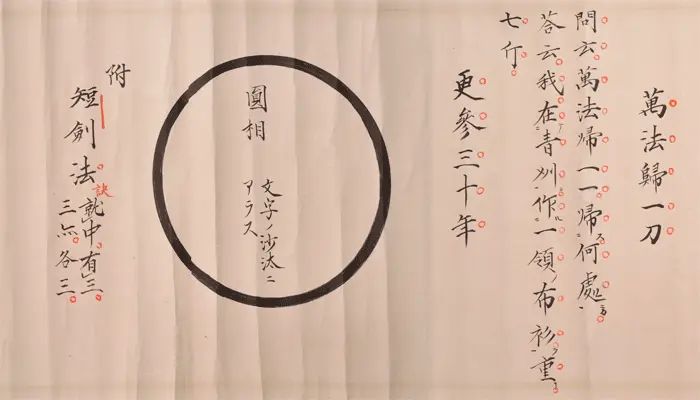 萬法歸一刀
問云萬法歸一一歸何處
答云我在青州作一領布衫重
七斤
更參三十年
圓相
文字ノ沙汰ニ
アラス
附
短劍法
訣
就中有三
三点各三